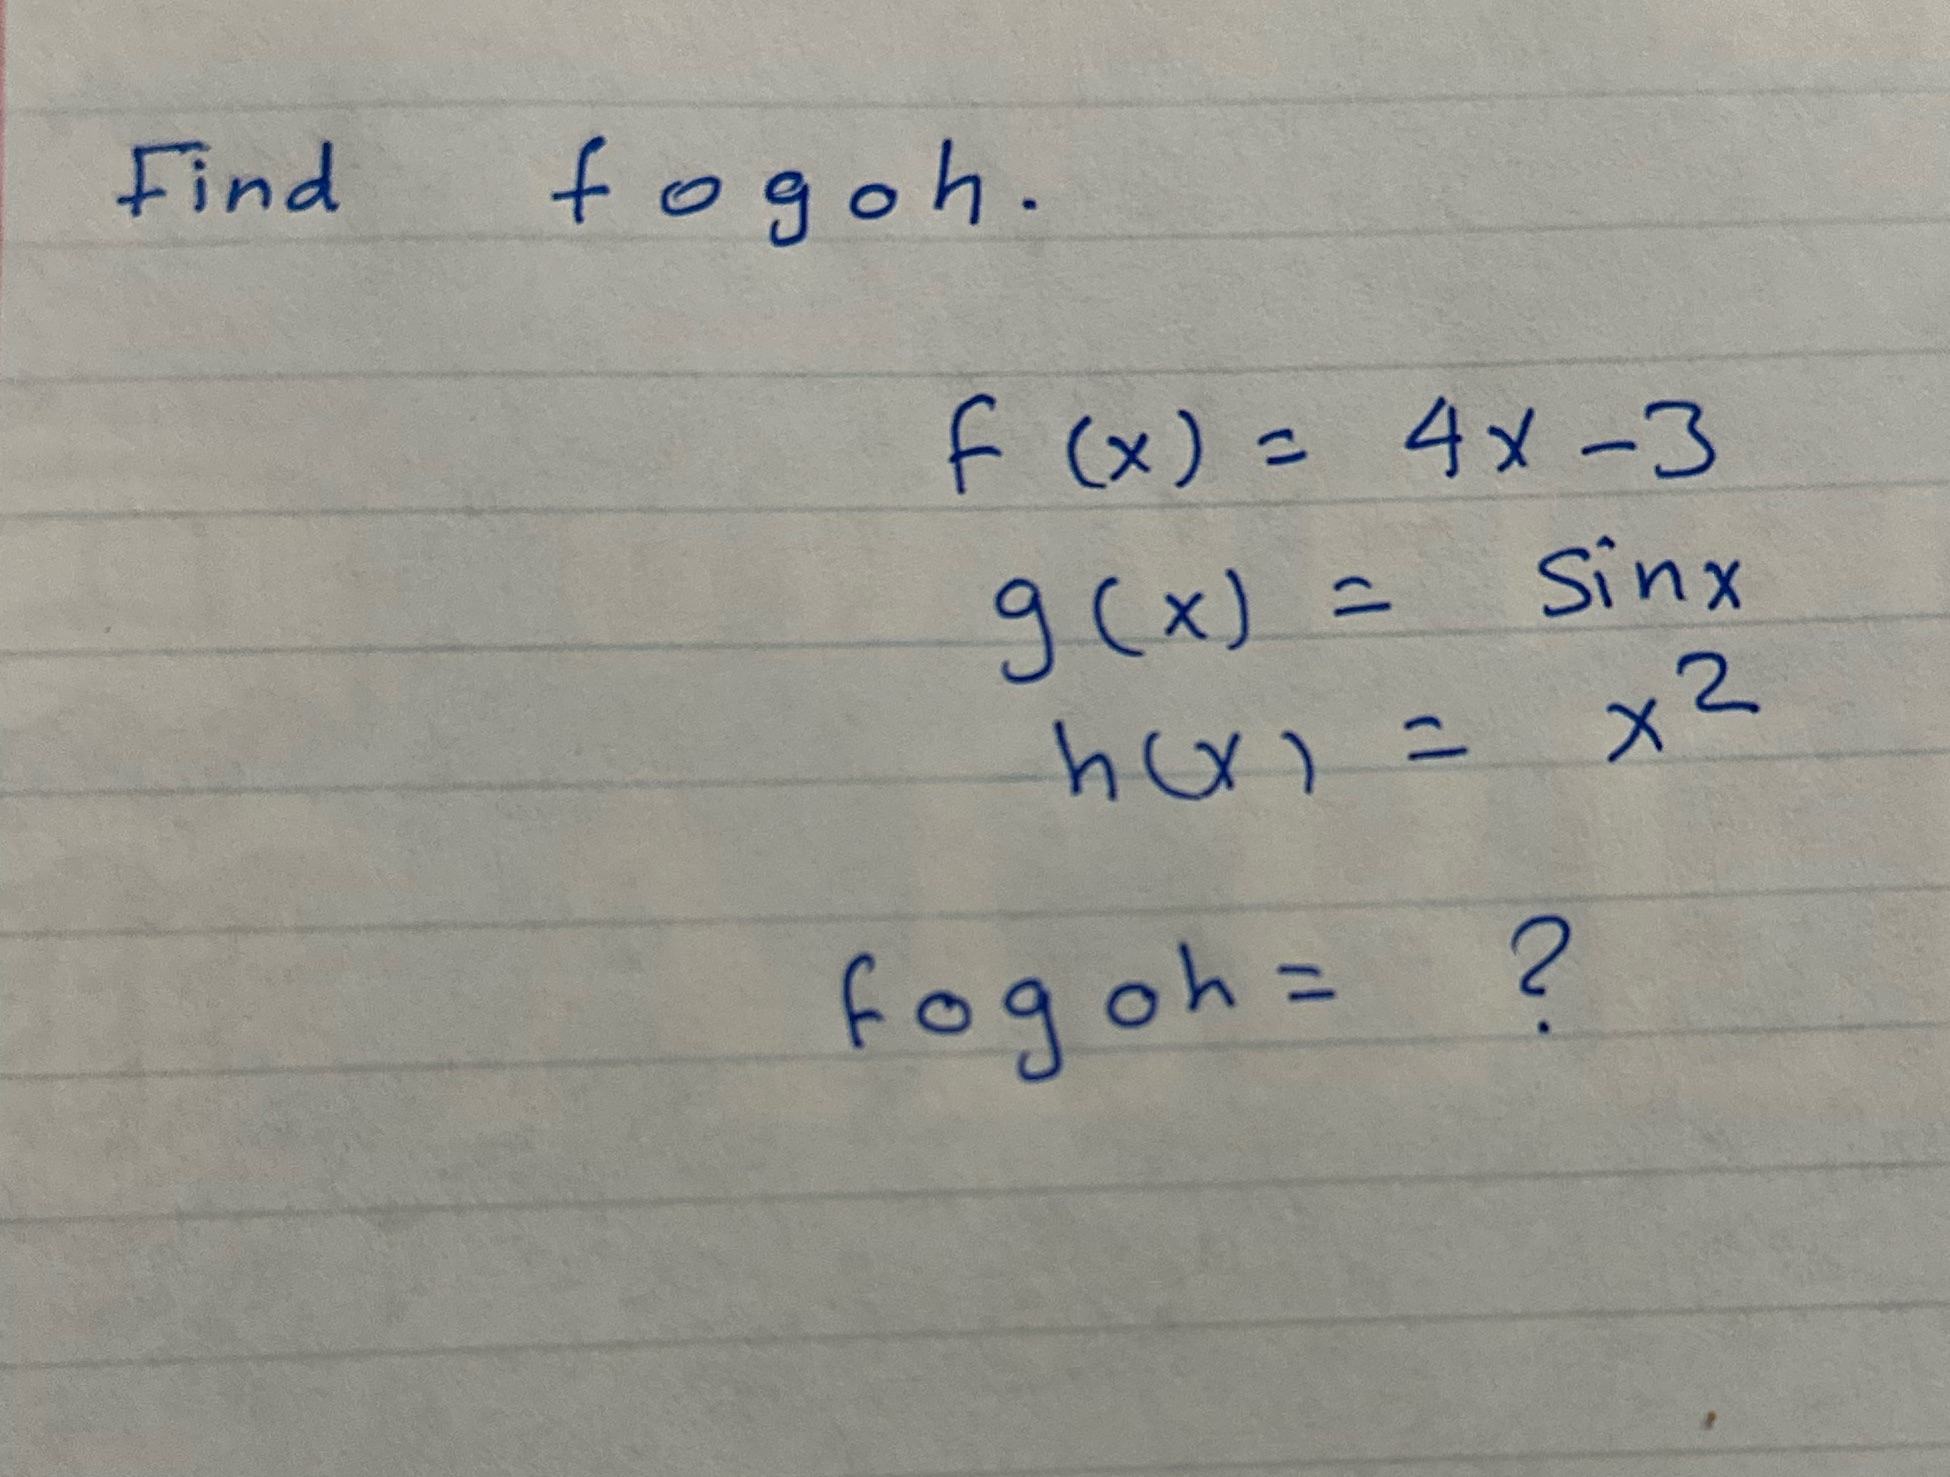 Find fogoh.
f(x) = 4x-3
g(x) = sinx
h(x) = x²
fogoh = ?